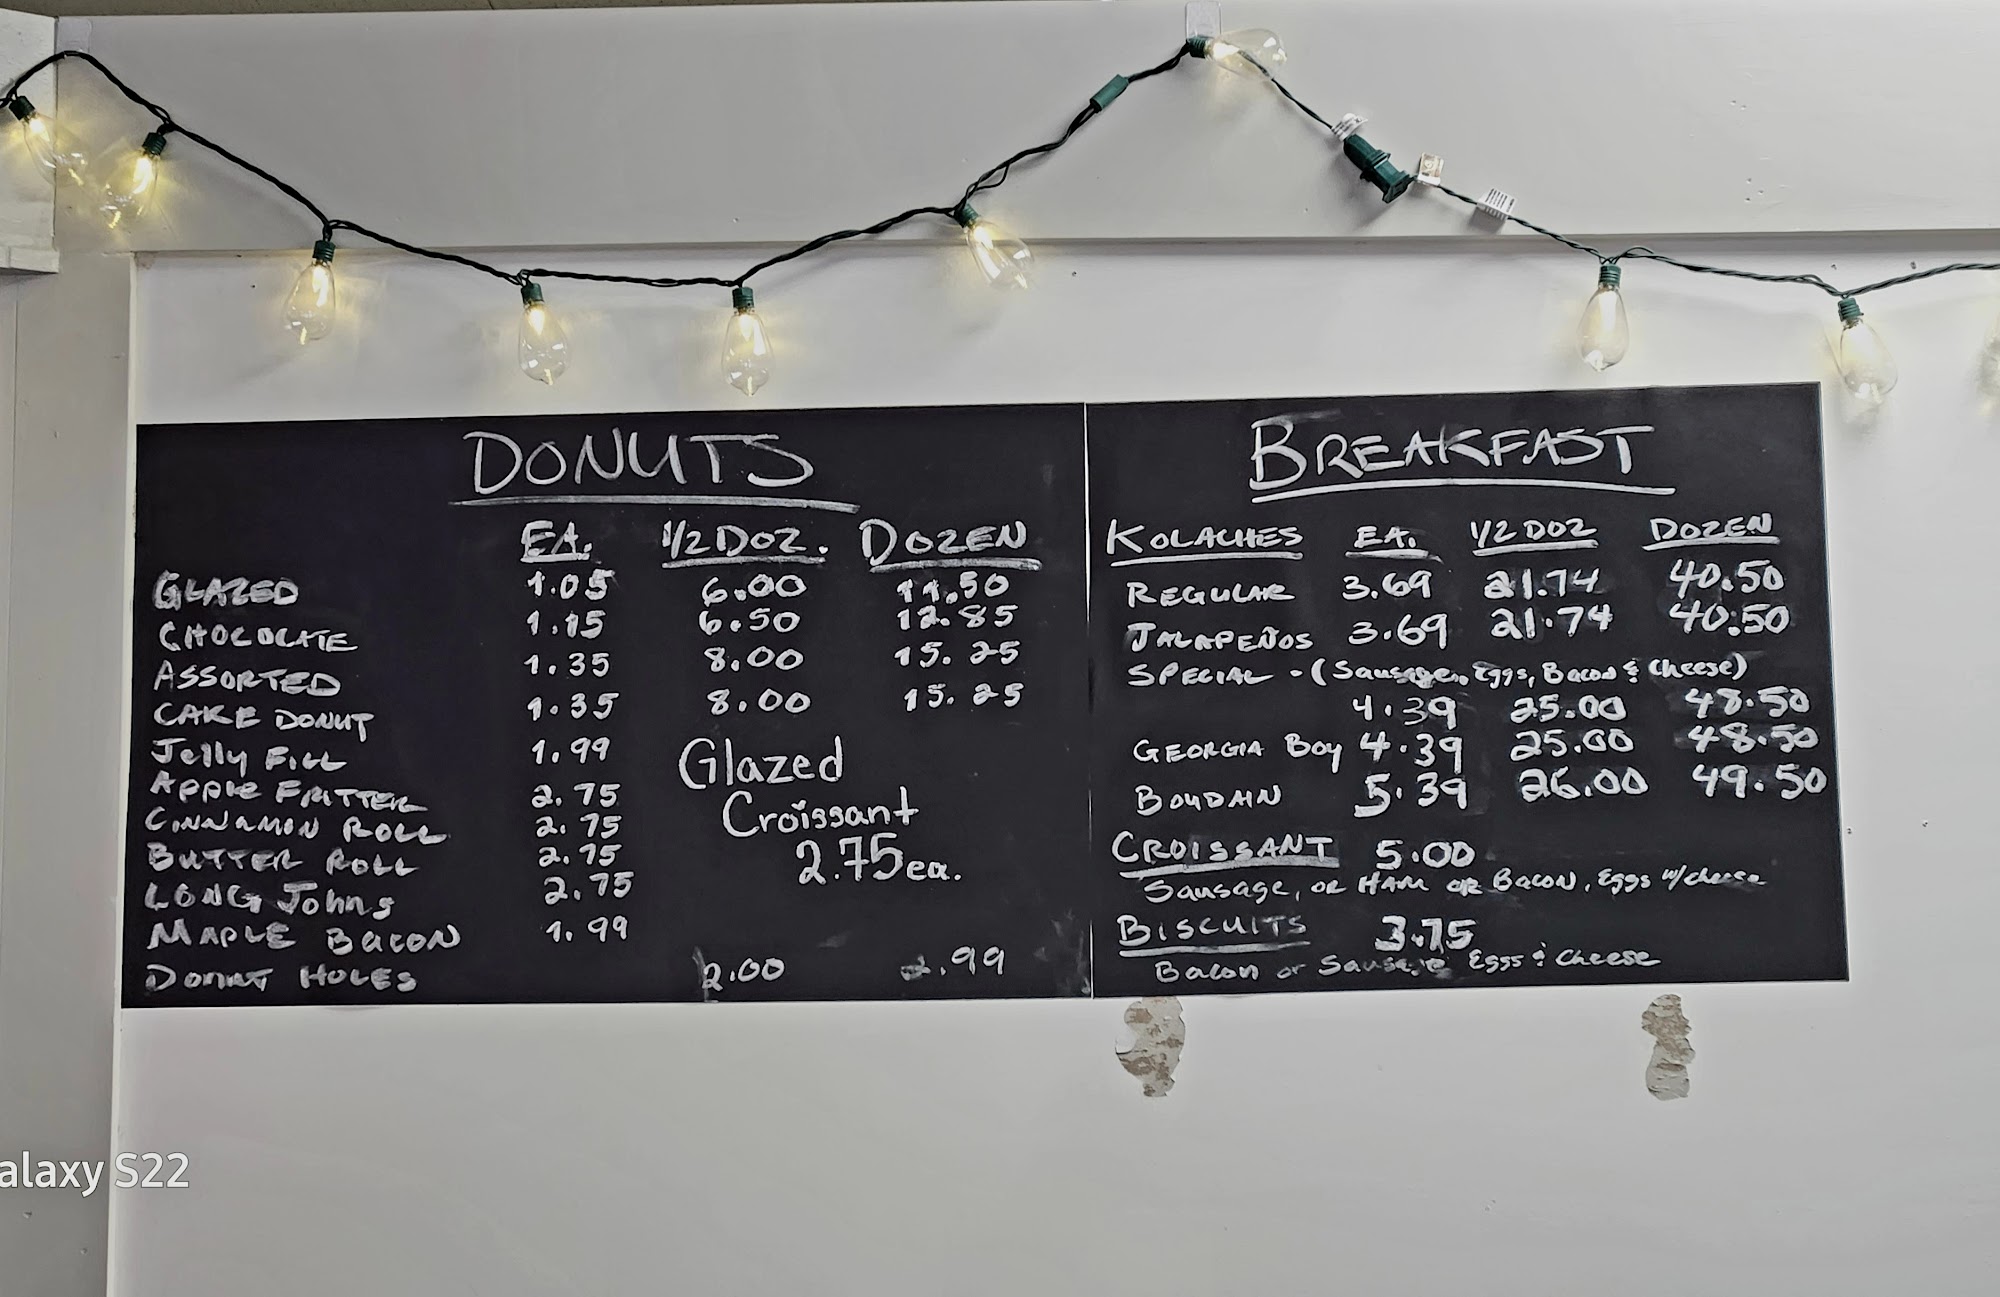 DONUTS
EA. 1/2 DOZ. DOZEN
GLAZED 1.05 6.00 11.50
CHOCOLATE 1.15 6.50 12.85
ASSORTED 1.35 8.00 15.25
CAKE DONUT 1.35 8.00 15.25
Jelly Fill 1.99
APPle FRITTER 2.75
CINNAMON ROLL 2.75
BUTTER ROLL 2.75
LONG Johns 2.75
MAPLE BACON 1.99
DONUT HOLES 2.00 .99
Glazed
Croissant
2.75 ea.
BREAKFAST
KOLACHES EA. 1/2 DOZ DOZEN
REGULAR 3.69 21.74 40.50
JALAPEÑOS 3.69 21.74 40.50
SPECIAL - (Sausage, Eggs, Bacon & Cheese)
4.39 25.00 48.50
GEORGIA BOY 4.39 25.00 48.50
BOUDAIN 5.39 26.00 49.50
CROISSANT 5.00
Sausage, OR HAM OR BACON, Eggs w/cheese
BISCUITS 3.75
Bacon or Sausage Eggs & Cheese
alaxy S22